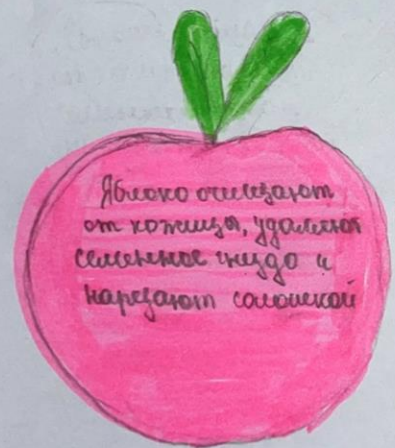 Яблоко очищают
от кожицы, удаляют
семенное гнездо и
нарезают соломкой